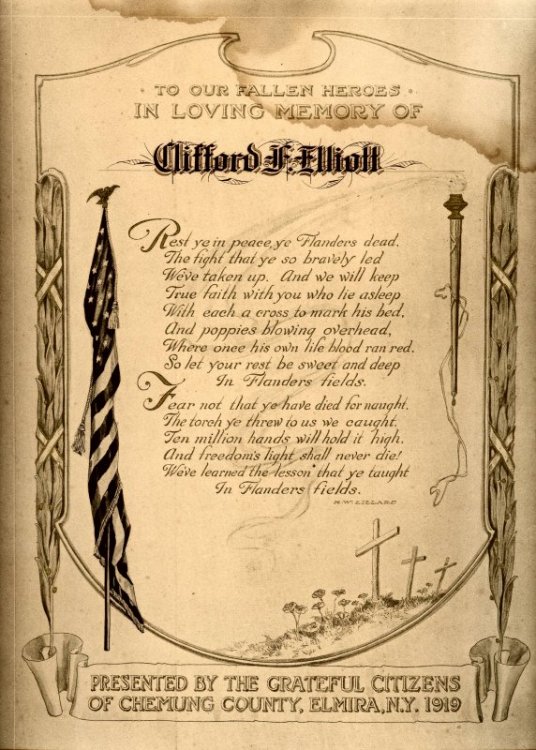 · TO OUR FALLEN HEROES ·
IN LOVING MEMORY OF
Clifford F. Elliott
Rest ye in peace, ye Flanders dead.
The fight that ye so bravely led
We've taken up. And we will keep
True faith with you who lie asleep
With each a cross to mark his bed,
And poppies blowing overhead,
Where once his own life blood ran red.
So let your rest be sweet and deep
In Flanders fields.
Fear not that ye have died for naught.
The torch ye threw to us we caught.
Ten million hands will hold it high,
And freedom's light shall never die!
We've learned the lesson that ye taught
In Flanders fields.
R.W. LILLARD
PRESENTED BY THE GRATEFUL CITIZENS
OF CHEMUNG COUNTY, ELMIRA, N.Y. 1919